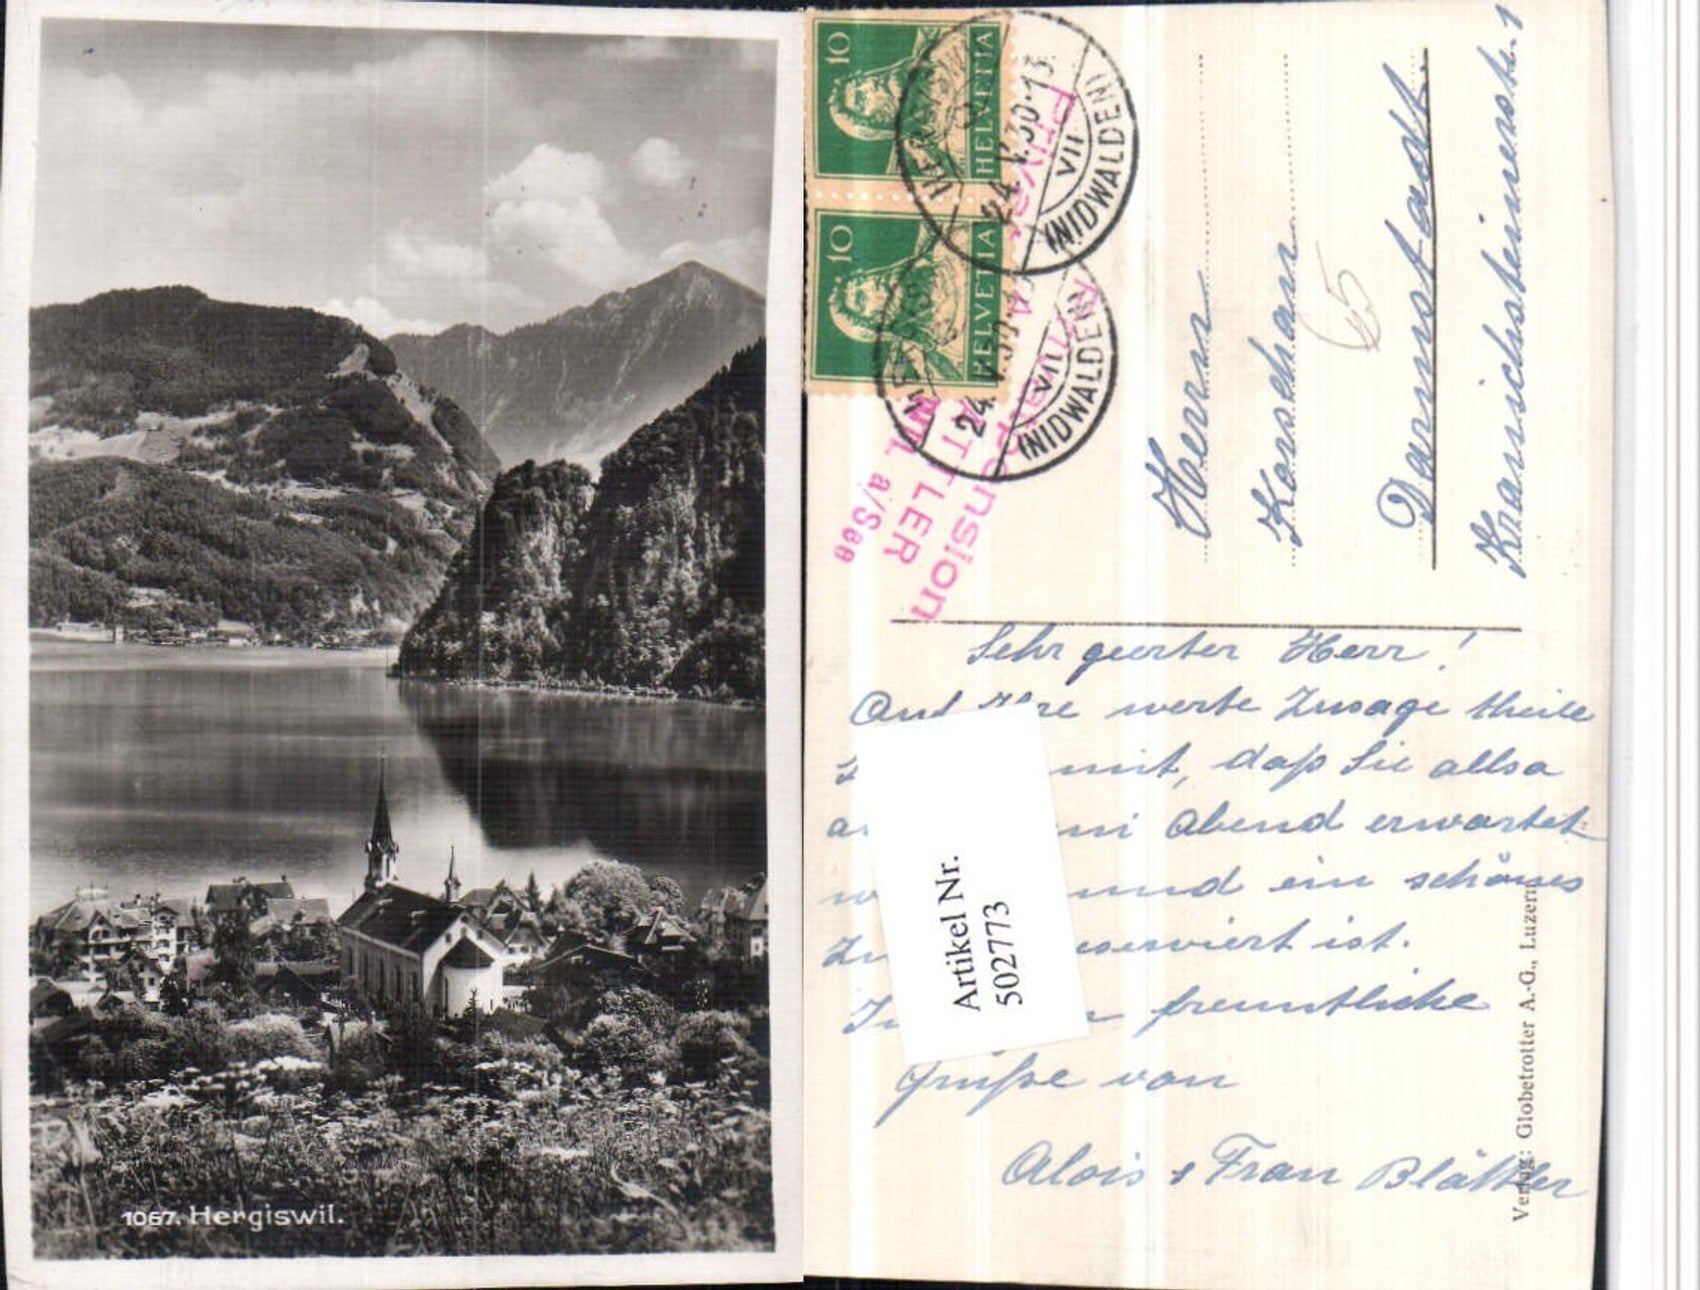 1067. Hergiswil.
10
HELVETIA
10
HELVETIA
24.V.30-13
VII
(NIDWALDEN)
24.V.30
VII
(NIDWALDEN)
Privatpension
A. BLÄTTLER
HERGISWIL a/See
Herrn
Korschan
Darmstadt.
Kranichsteinerstr. 1
65
Sehr geerter Herr!
Auf Ihre werte Zusage theile
mit, daß Sie allso
Abend erwartet
und ein schönes
reserviert ist.
freuntliche
Grüße von
Alois & Frau Blättler
Artikel Nr.
502773
Verlag: Globetrotter A.-G., Luzern